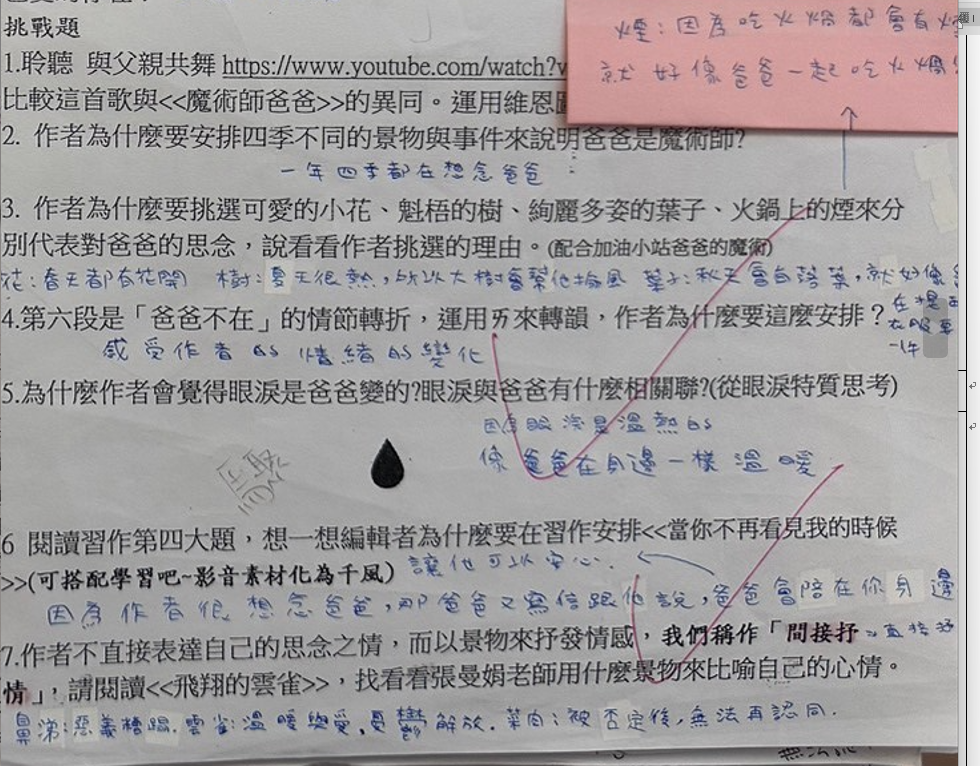 挑戰題
煙：因為吃火鍋都會有煙
就好像爸爸一起吃火鍋
1.聆聽 與父親共舞 https://www.youtube.com/watch?v
比較這首歌與<<魔術師爸爸>>的異同。運用維恩圖
2. 作者為什麼要安排四季不同的景物與事件來說明爸爸是魔術師?
一年四季都在想念爸爸
3. 作者為什麼要挑選可愛的小花、魁梧的樹、絢麗多姿的葉子、火鍋上的煙來分
別代表對爸爸的思念，說看看作者挑選的理由。(配合加油小站爸爸的魔術)
花：春天都有花開 樹：夏天很熱，所以大樹會幫他搧風 葉子：秋天會有落葉，就好像
4.第六段是「爸爸不在」的情節轉折，運用ㄞ來轉韻，作者為什麼要這麼安排？
一件
感受作者的情緒的變化
5.為什麼作者會覺得眼淚是爸爸變的?眼淚與爸爸有什麼相關聯?(從眼淚特質思考)
因為眼淚是溫熱的
像爸爸在身邊一樣溫暖
6 閱讀習作第四大題，想一想編輯者為什麼要在習作安排<<當你不再看見我的時候
>>(可搭配學習吧~影音素材化為千風) 讓他可以安心.
因為作者很想念爸爸，那爸爸又寫信跟他說，爸爸會陪在你身邊
7.作者不直接表達自己的思念之情，而以景物來抒發情感，我們稱作「間接抒
直接抒
情」，請閱讀<<飛翔的雲雀>>，找看看張曼娟老師用什麼景物來比喻自己的心情。
鼻涕：惡義糟蹋. 雲雀：溫暖與愛，憂鬱解放. 菜肉：被否定後，無法再認同.